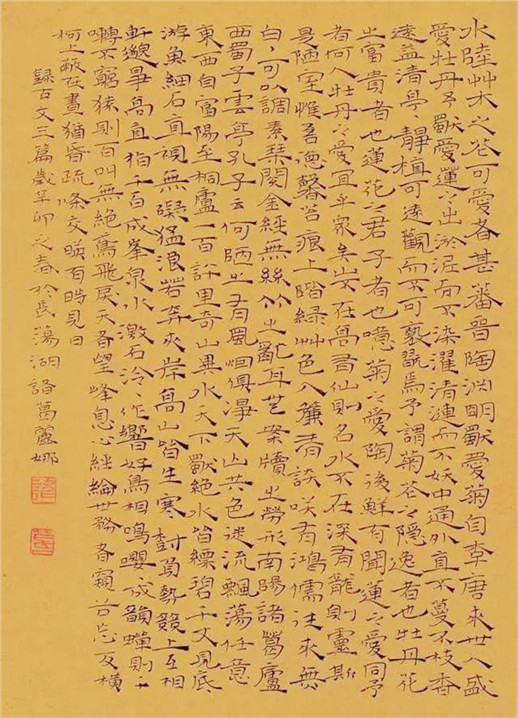 水陸艸木之花可愛者甚蕃晉陶淵明獨愛菊自李唐來世人盛
愛牡丹予獨愛蓮之出淤泥而不染濯清漣而不妖中通外直不蔓不枝香
遠益清亭亭靜植可遠觀而不可褻翫焉予謂菊花之隱逸者也牡丹花
之富貴者也蓮花之君子者也噫菊之愛陶後鮮有聞蓮之愛同予
者何人牡丹之愛宜乎眾矣山不在高有仙則名水不在深有龍則靈斯
是陋室惟吾德馨苔痕上階綠艸色入簾青談笑有鴻儒往來無
白丁可以調素琴閱金經無絲竹之亂耳無案牘之勞形南陽諸葛廬
西蜀子雲亭孔子云何陋之有風煙俱淨天山共色從流飄蕩任意
東西自富陽至桐廬一百許里奇山異水天下獨絕水皆縹碧千丈見底
游魚細石直視無礙猛浪若奔夾岸高山皆生寒樹負勢競上互相
軒邈爭高直指千百成峯泉水激石泠泠作響好鳥相鳴嚶嚶成韻蟬則千
囀不窮猿則百叫無絕鳶飛戾天者望峰息心經綸世務者窺谷忘反橫
柯上蔽在晝猶昏疏條交映有時見日
錄古文三篇歲辛卯之春於長蕩湖諸葛麗娜